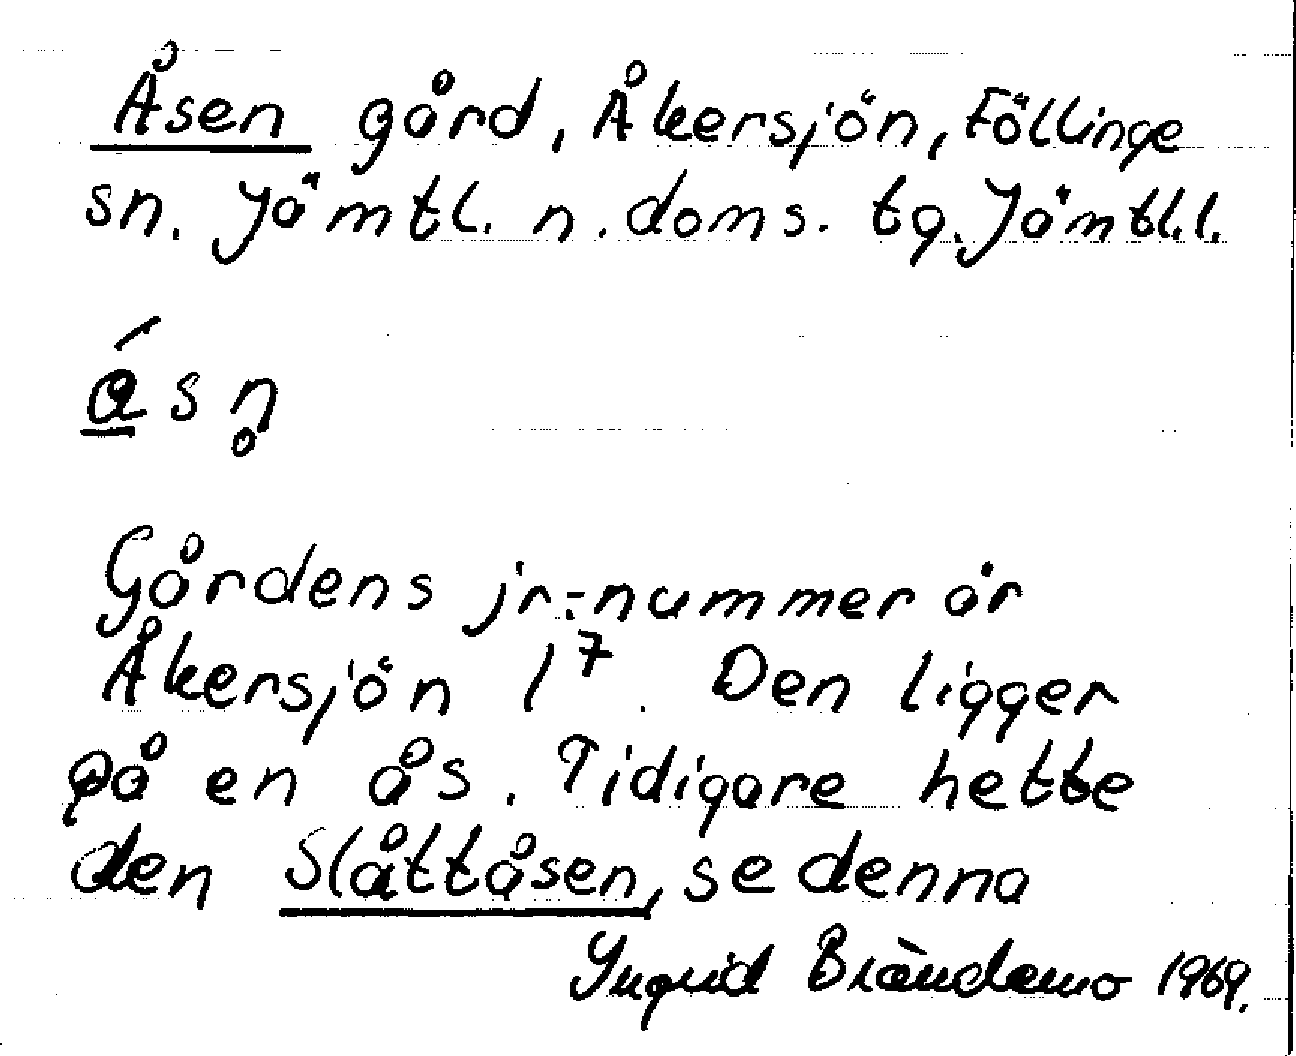 Åsen gård, Åkersjön, Föllinge
sn. Jämtl. n. doms. tg. Jämtl.l.
á̲sn̥
Gårdens jr.-nummer är
Åkersjön 1⁷. Den ligger
på en ås. Tidigare hette
den Slåttåsen, se denna
Ingrid Brändemo 1969.